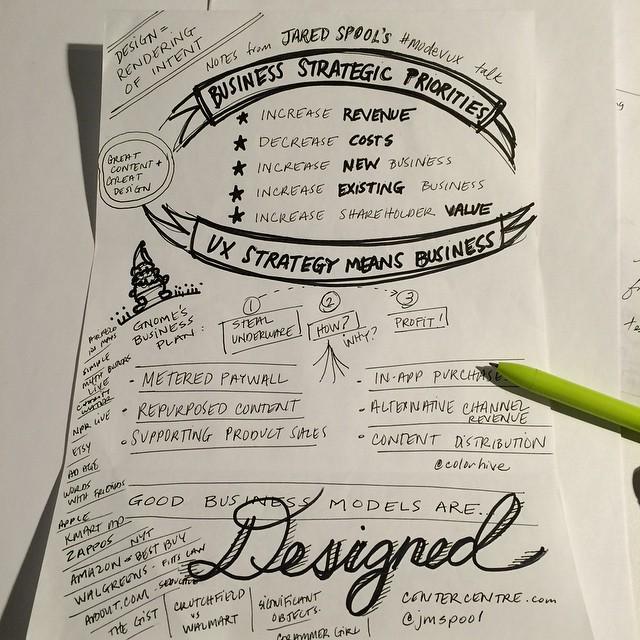 DESIGN =
RENDERING
OF INTENT
NOTES from JARED SPOOL'S #modevux talk
BUSINESS STRATEGIC PRIORITIES
★ INCREASE REVENUE
★ DECREASE COSTS
★ INCREASE NEW BUSINESS
★ INCREASE EXISTING BUSINESS
★ INCREASE SHAREHOLDER VALUE
GREAT
CONTENT +
GREAT
DESIGN
UX STRATEGY MEANS BUSINESS
GNOME'S
BUSINESS
PLAN:
① STEAL
UNDERWARE
② HOW?
WHY?
③ PROFIT!
• METERED PAYWALL
• REPURPOSED CONTENT
• SUPPORTING PRODUCT SALES
• IN-APP PURCHASE
• ALTERNATIVE CHANNEL
REVENUE
• CONTENT DISTRIBUTION
@colorhive
GOOD BUSINESS MODELS ARE
Designed
SIMPLE
LIVE
NPR LIVE
ETSY
AD AGE
WORDS
WITH FRIENDS
APPLE
KMART
ZAPPOS NYT
AMAZON = BEST BUY
WALGREENS - FITTS LAW
ABOUT.COM -
THE GIST
CRUTCHFIELD
vs
WALMART
SIGNIFICANT
OBJECTS.
GRAMMER GIRL
CENTERCENTRE.com
@jmspool